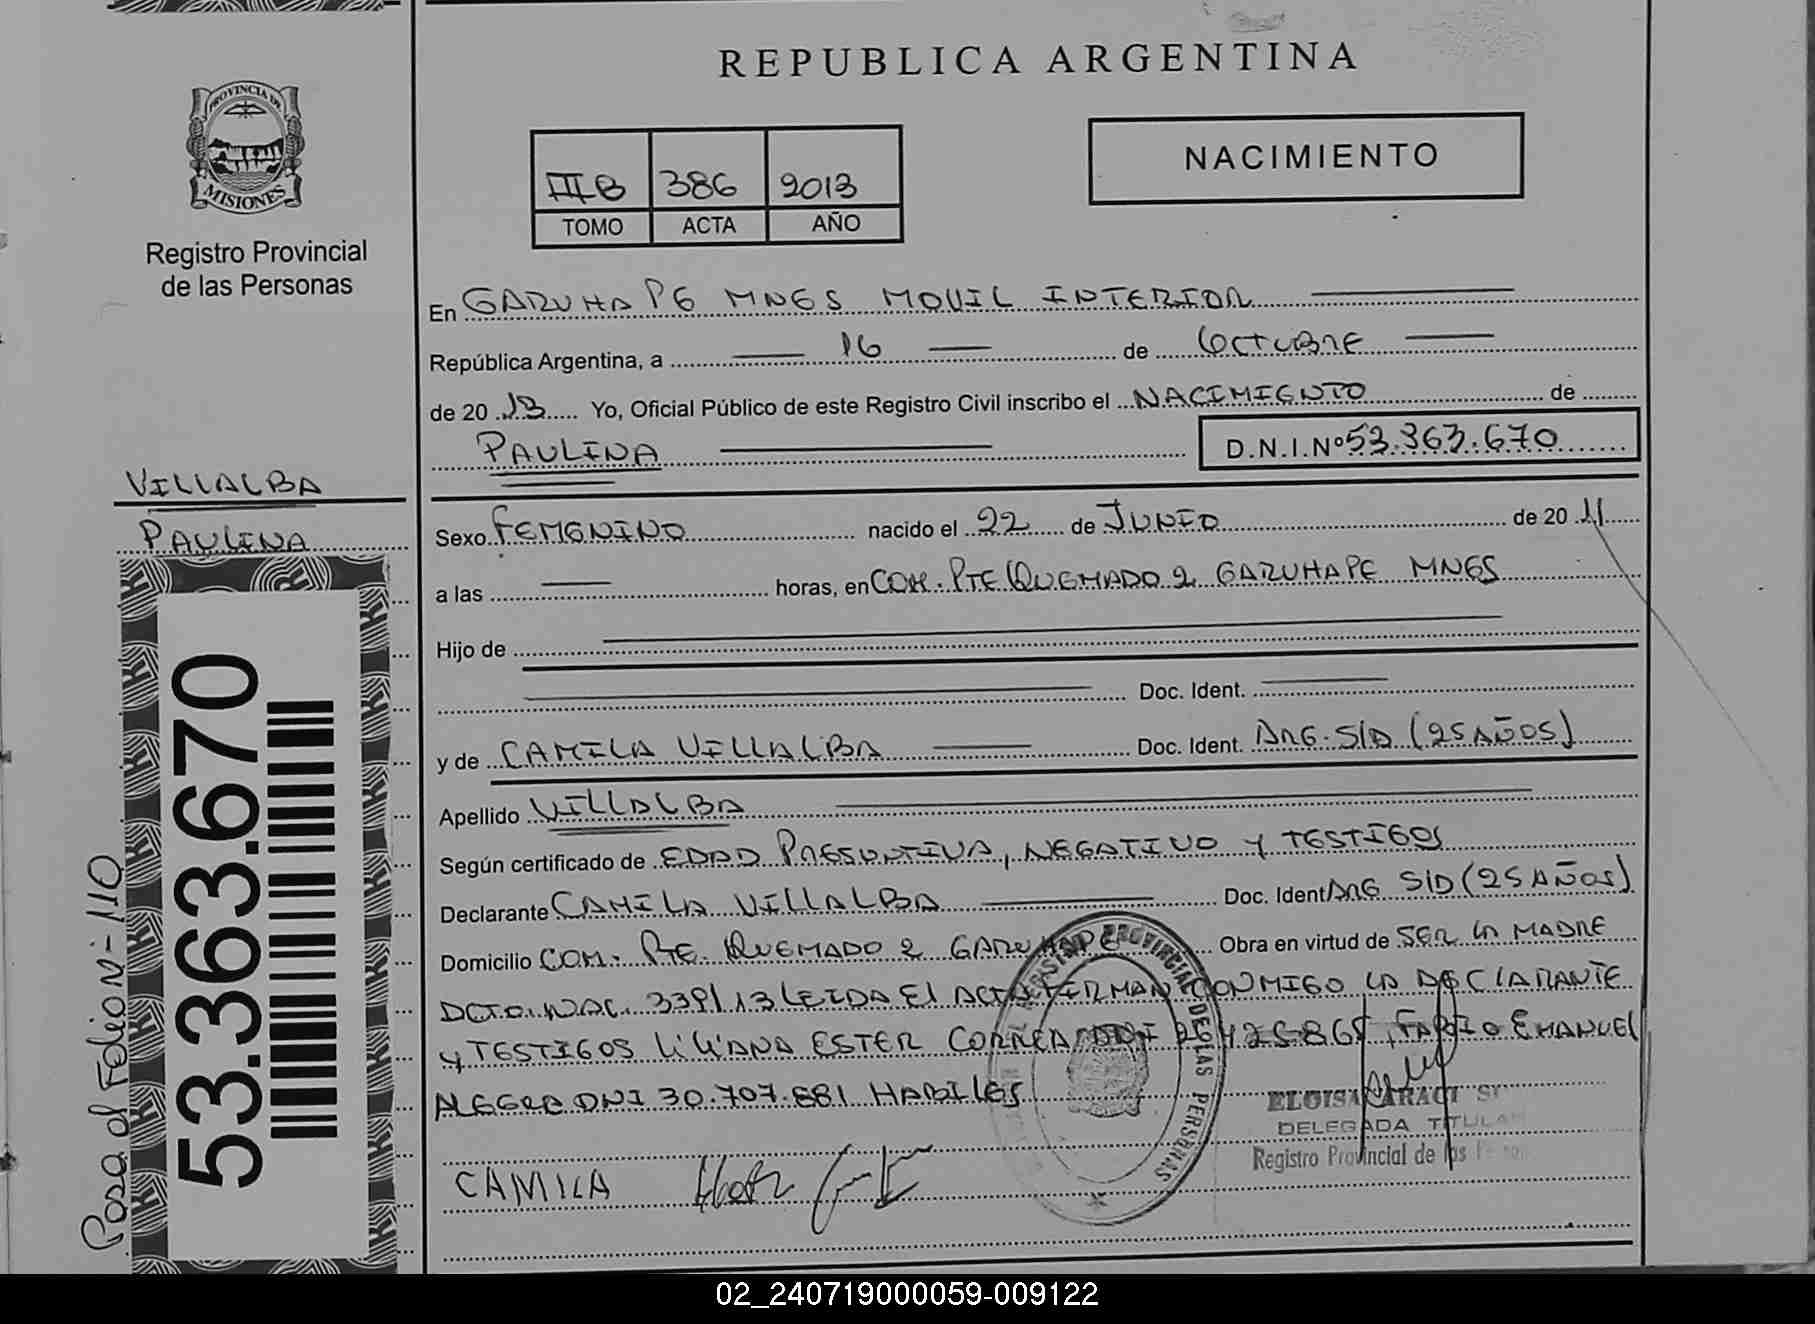 REPUBLICA ARGENTINA
PROVINCIA DE
MISIONES
Registro Provincial
de las Personas
IIIB 386 2013
TOMO ACTA AÑO
NACIMIENTO
En GARUHAPE MNES MOVIL INTERIOR
República Argentina, a 16 de Octubre
de 20 13 Yo, Oficial Público de este Registro Civil inscribo el NACIMIENTO de
PAULINA
D.N.I.Nº 53.363.670
VILLALBA
PAULINA
53.363.670
Pasa al Folio Nº 110
Sexo FEMENINO nacido el 22 de JUNIO de 20 11
a las horas, en COM. PTE QUEMADO 2 GARUHAPE MNES
Hijo de
Doc. Ident.
y de CAMILA VILLALBA Doc. Ident. ARG. S/D (25 AÑOS)
Apellido VILLALBA
Según certificado de EDAD PRESUNTIVA, NEGATIVO Y TESTIGOS
Declarante CAMILA VILLALBA Doc. Ident ARG S/D (25 AÑOS)
Domicilio COM. PTE. QUEMADO 2 GARUHAPE Obra en virtud de SER LA MADRE
DCTO. NAC. 339/13 LEIDA El ACTA FIRMAN CONMIGO LA DECLARANTE
Y TESTIGOS LILIANA ESTER CORREA DNI FABIO EMANUEL
ALEGRE DNI 30.707.881 HABILES
PROVINCIAL DE LAS PERSONAS
ELOISA
DELEGADA TITULAR
Registro Provincial de las
CAMILA
02_240719000059-009122